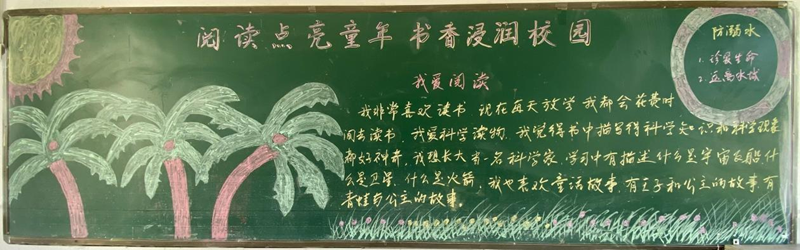 阅读点亮童年 书香浸润校园
防溺水
1. 珍爱生命
2. 远离水域
我爱阅读
我非常喜欢读书 现在每天放学 我都会花费时
间去读书，我爱科学读物，我觉得书中描写得科学知识和科学现象
都好神奇，我想长大当一名科学家，学习中有描述什么是宇宙飞船什
么是卫星，什么是火箭，我也喜欢童话故事，有王子和公主的故事，有
青蛙与公主的故事。